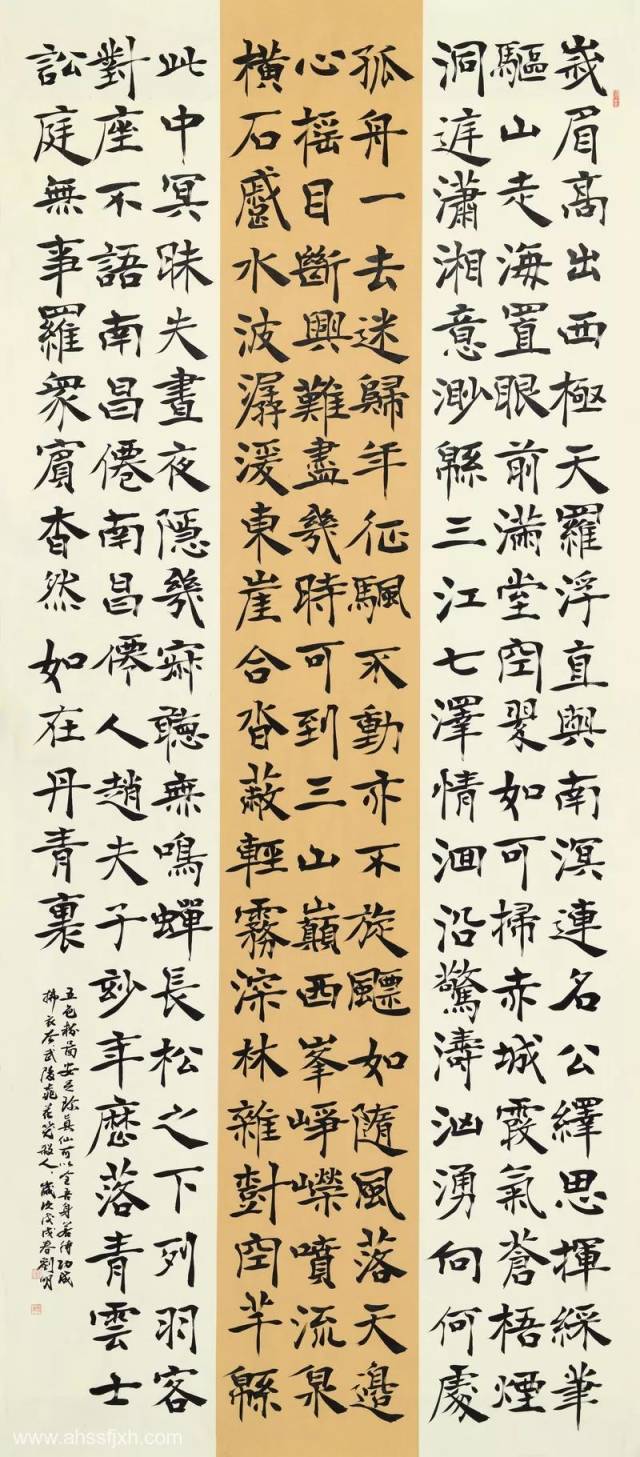 峩眉高出西極天羅浮直與南溟連名公繹思揮綵筆
驅山走海置眼前滿堂空翠如可掃赤城霞氣蒼梧煙
洞庭瀟湘意渺緜三江七澤情洄沿驚濤洶湧向何處
孤舟一去迷歸年征颿不動亦不旋飄如隨風落天邊
心搖目斷興難盡幾時可到三山巔西峯崢嶸噴流泉
橫石蹙水波潺湲東崖合沓蔽輕霧深林雜樹空芊緜
此中冥昧失晝夜隱幾寂聽無鳴蟬長松之下列羽客
對座不語南昌僊南昌僊人趙夫子妙年歷落青雲士
訟庭無事羅衆賓杳然如在丹青裏
五色粉圖安足珍真仙可以全吾身若待功成
拂衣去武陵桃花笑殺人歲次戊戌春劉明
www.ahssfjxh.com